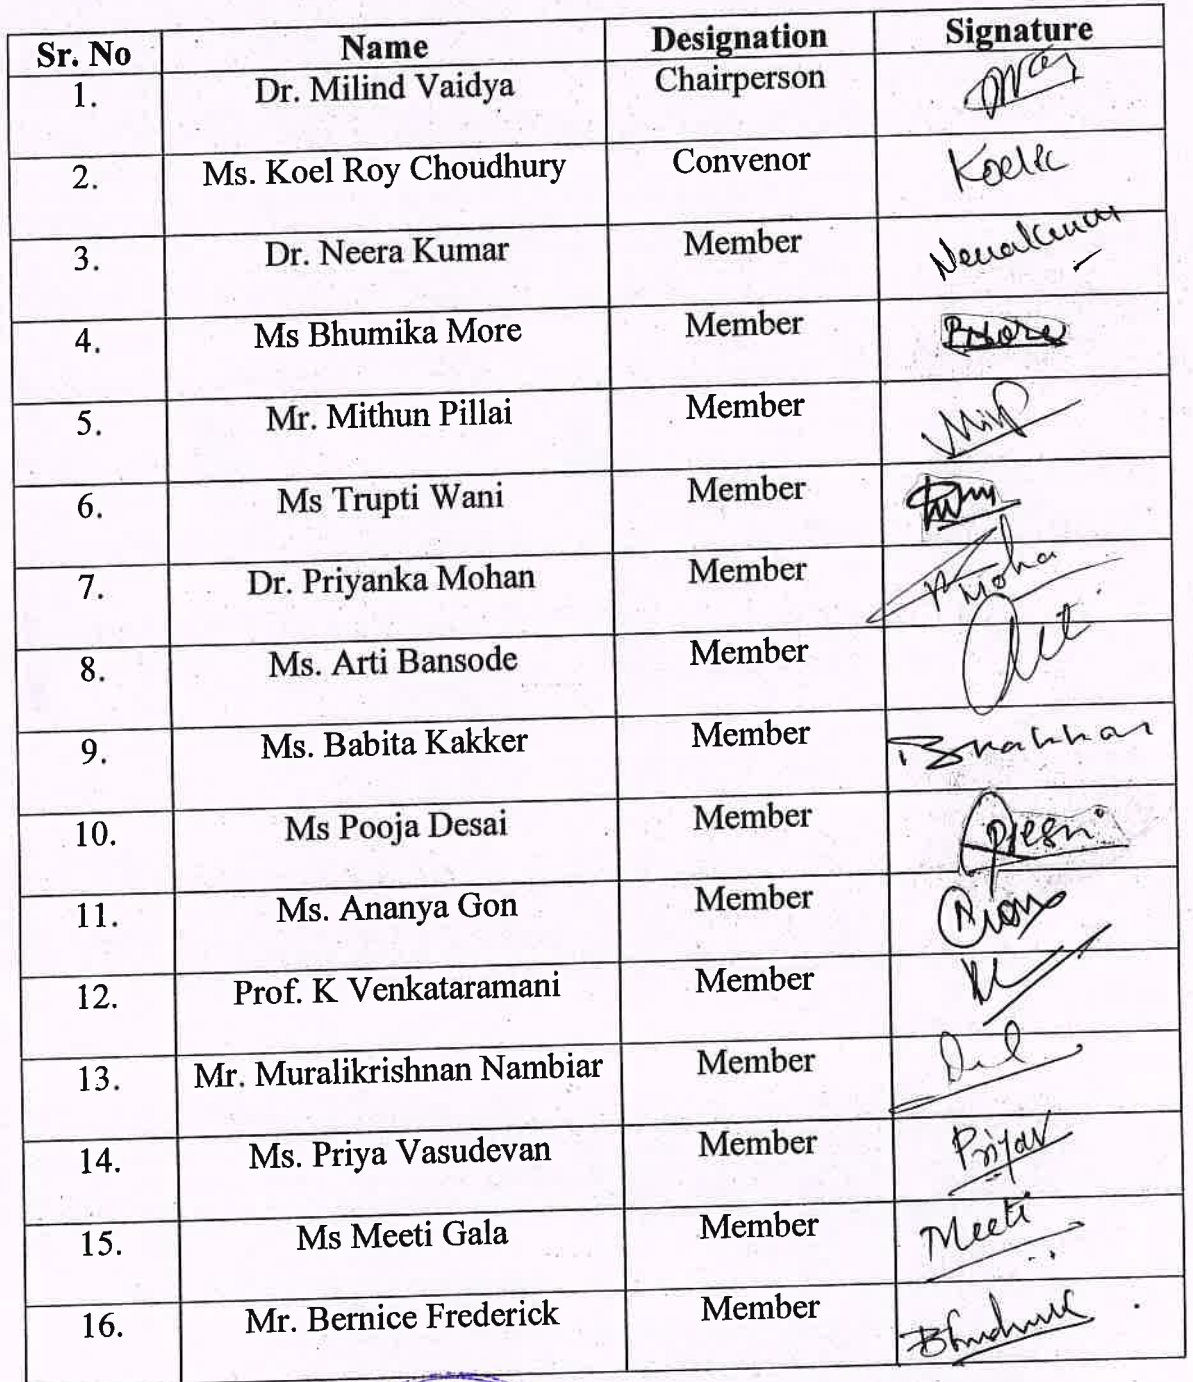 Sr. No Name Designation Signature
1. Dr. Milind Vaidya Chairperson
2. Ms. Koel Roy Choudhury Convenor
3. Dr. Neera Kumar Member
4. Ms Bhumika More Member
5. Mr. Mithun Pillai Member
6. Ms Trupti Wani Member
7. Dr. Priyanka Mohan Member
8. Ms. Arti Bansode Member
9. Ms. Babita Kakker Member
10. Ms Pooja Desai Member
11. Ms. Ananya Gon Member
12. Prof. K Venkataramani Member
13. Mr. Muralikrishnan Nambiar Member
14. Ms. Priya Vasudevan Member PriyaV
15. Ms Meeti Gala Member Meeti
16. Mr. Bernice Frederick Member